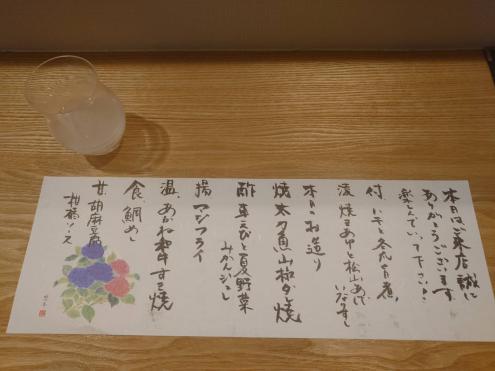 本日はご来店誠に
ありがとうございます
楽しんでいって下さい♪
付、いちじくと冬瓜の旨煮、
凌、焼きあゆと松山あげ
いなり寿し
本日のお造り
焼 太刀魚山椒だし焼
酢 車えびと夏野菜
みかんジュレ
揚 アジフライ
温、あかね和牛すき焼
食、鯛めし
甘、胡麻豆腐
柑橘ソース